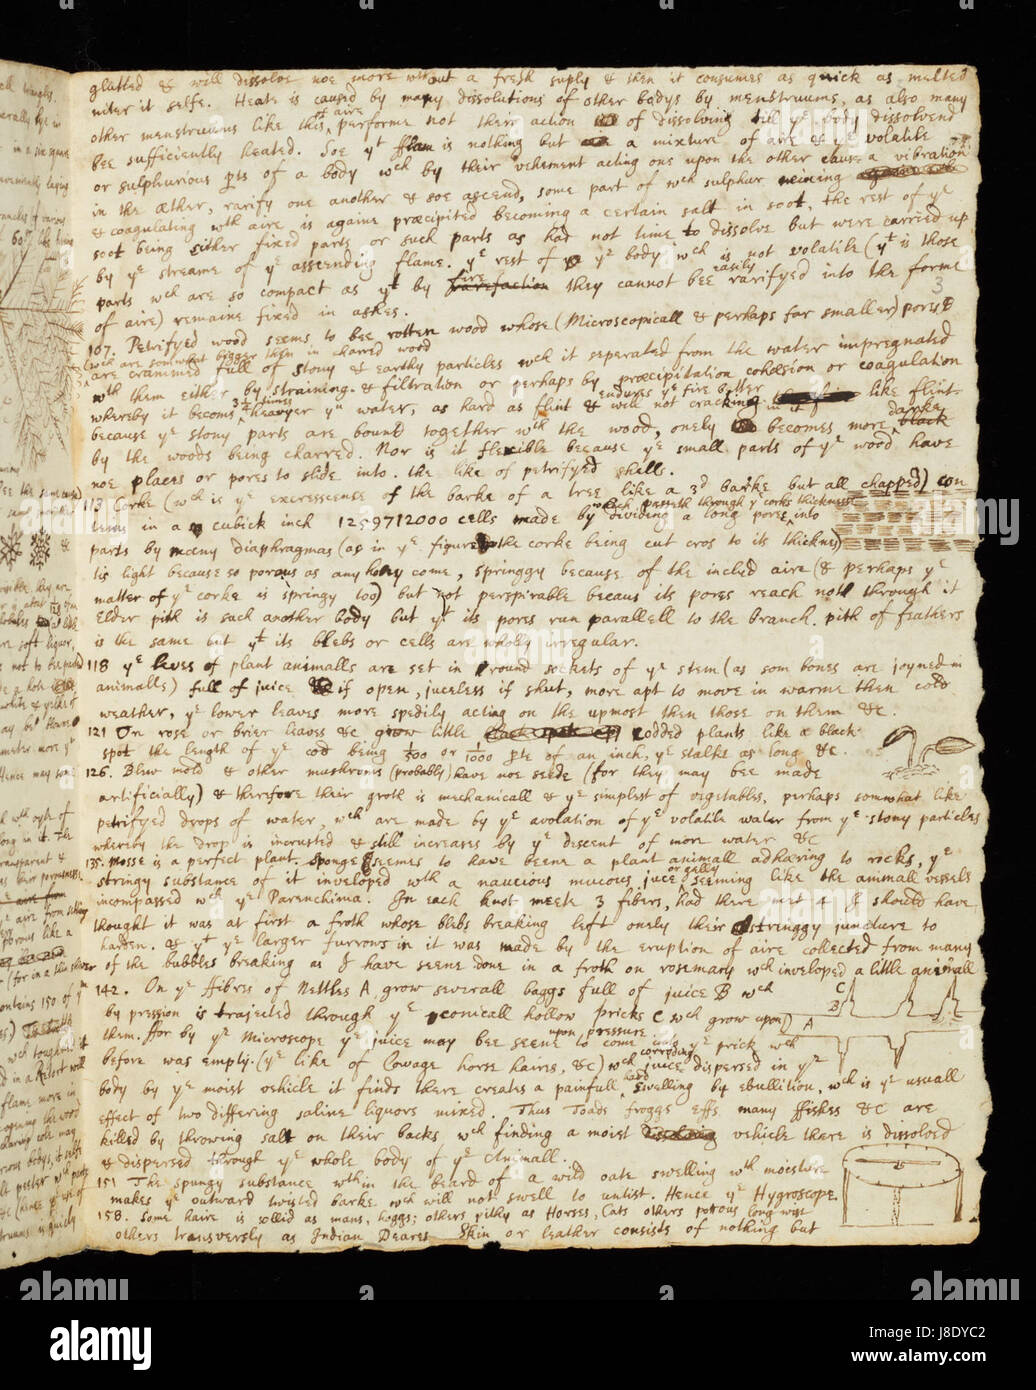 glutted & will dissolve noe more wthout a fresh suply & then it consumes as quick as melted
niter it selfe. Heate is caused by many dissolutions of other bodys by menstruums, as also many
other menstruums like this, of aire performe not their action of dissolving till ye body dissolvend
bee sufficiently heated. Soe yt flam is nothing but a mixture of aire & ye volatile
or sulphurious pts of a body wch by their vehement acting one upon the other cause a vibration
in the æther, rarify one another & soe ascend, some part of wch sulphur
& coagulating wth aire is againe præcipited becoming a certain salt in soot, the rest of ye
soot being either fixed parts or such parts as had not time to dissolve but were carried up
by ye streame of ye asscending flame. ye rest of ye body wch is not volatile (yt is those
parts wch are so compact as yt by fire rarefaction they cannot bee easily rarifyed into the forme
of aire) remaine fixed in ashes.
3
107. Petrifyed wood seems to bee rotten wood whose (Microscopicall & perhaps far smaller) pores
(wch are somwhat bigger then in charred wood
are crammed full of stony & earthy particles wch it seperated from the water impregnated
wth them either by straining & filtration or perhaps by præcipitation cohæsion or coagulation
whereby it becoms 3 1/4 times heavyer yn water, as hard as flint & endures ye fire better will not cracking in it like flint
because ye stony parts are bound together wth the wood, onely becomes more darke black
by the woods being charred. Nor is it flexible because ye small parts of ye wood have
noe places or pores to slide into. the like of petrifyed shells.
113 Corke (wch is ye excressense of the barke of a tree like a 3d barke but all chapped) con
teins in a cubick inch 1259712000 cells made by dividing a long pore, which passeth through ye corks thicknesse into
parts by many diaphragmas (as in ye figure the corke being cut cros to its thicknes)
tis light because so porous as any hony come, springgy because of the includ aire (& perhaps ye
matter of ye corke is springy too) but not perspirable becaus its pores reach not through it
Elder pith is such another body but yt its pores run parallell to the branch. pith of feathers
is the same but yt its blebs or cells are wholly irregular.
118 ye leves of plant animalls are set in round sockets of ye stem (as som bones are joyned in
animalls) full of juice if open, juceless if shut, more apt to move in warme then cold
weather, ye lower leaves more spedily acting on the upmost then those on them &c.
121 On rose or brier leaves &c grow little codded plants like a black
spot the length of ye cod being 1/500 or 1/1000 pte of an inch, ye stalks as long &c.
126. Blew mold & other mushroms (probably) have noe seede (for they may bee made
artificially) & therefore their groth is mechanicall & ye simplest of vegetables, perhaps somwhat like
petrifyed drops of water, wch are made by ye avolation of ye volatile water from ye stony particles
whereby the drop is incrusted & still increases by ye descent of more water &c
135. Mosse is a perfect plant. Sponge seemes to have beene a plant animall adhæring to rocks, ye
stringy substance of it inveloped wth a naucious mucous juce or gelly seeming like the animall vessels
incompassed wth ye Parenchima. In each knot meete 3 fibers, had there met 4 I should have
thought it was at first a froth whose blebs breaking left onely their stringgy junctures to
harden. as yt ye larger furrows in it was made by the eruption of aire collected from many
of the bubbles breaking as I have seene done in a froth on rosemary wch inveloped a little animall
142. On ye ffibres of Nettles A grow severall baggs full of juice B wch
by pression is trajected through ye conicall hollow pricks C wch grow upon
them. ffor by ye Microscope ye juice may bee seene to come upon pressure into ye prick wch
before was empty. (ye like of Cowage horse haires, &c) wch corroding juice dispersed in ye
body by ye moist vehicle it finds there creates a painfull hard swelling by ebullition. wch is ye usuall
effect of two differing saline liquors mixed. Thus Toads froggs effs many ffishes &c are
killed by throwing salt on their backs, wch finding a moist vehicle there is dissolved
& dispersed through ye whole body of ye Animall.
151 The spungy substance wthin the beard of a wild oate swelling wth moisture
makes ye outward twisted barke wch will not swell to untist. Hence ye Hygroscope.
158. Some haire is sollid as mans, hoggs; others pithy as Horses, Cats others porous long wise
others transversly as Indian Deares Skin or leather consists of nothing but
C
B
A
alamy
a
alamy
Image ID: J8DYC2
www.alamy.com